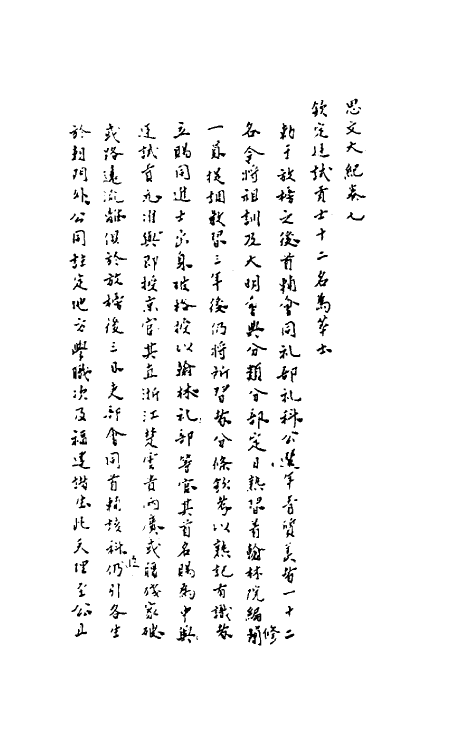 思文大紀卷九
欽定廷試貢士十二名為萃士
勅于放榜之後首輔會同礼部礼科公選年青質美者一十二
各令將祖訓及大明會典分類分部定日熟習着翰林院編修
一員提調教習三年後仍將所習者分條欽奉以熟記有識者
立賜同進士出身破格授以翰林礼部等官其首名賜為中興
廷試首元准與即授京官其直浙江楚雲貴兩廣或
或路遠流離俱於放榜後三日吏部會同首輔該科仍引各生
於朝門外公同註定地方學職次及福建諸生此天理至公且